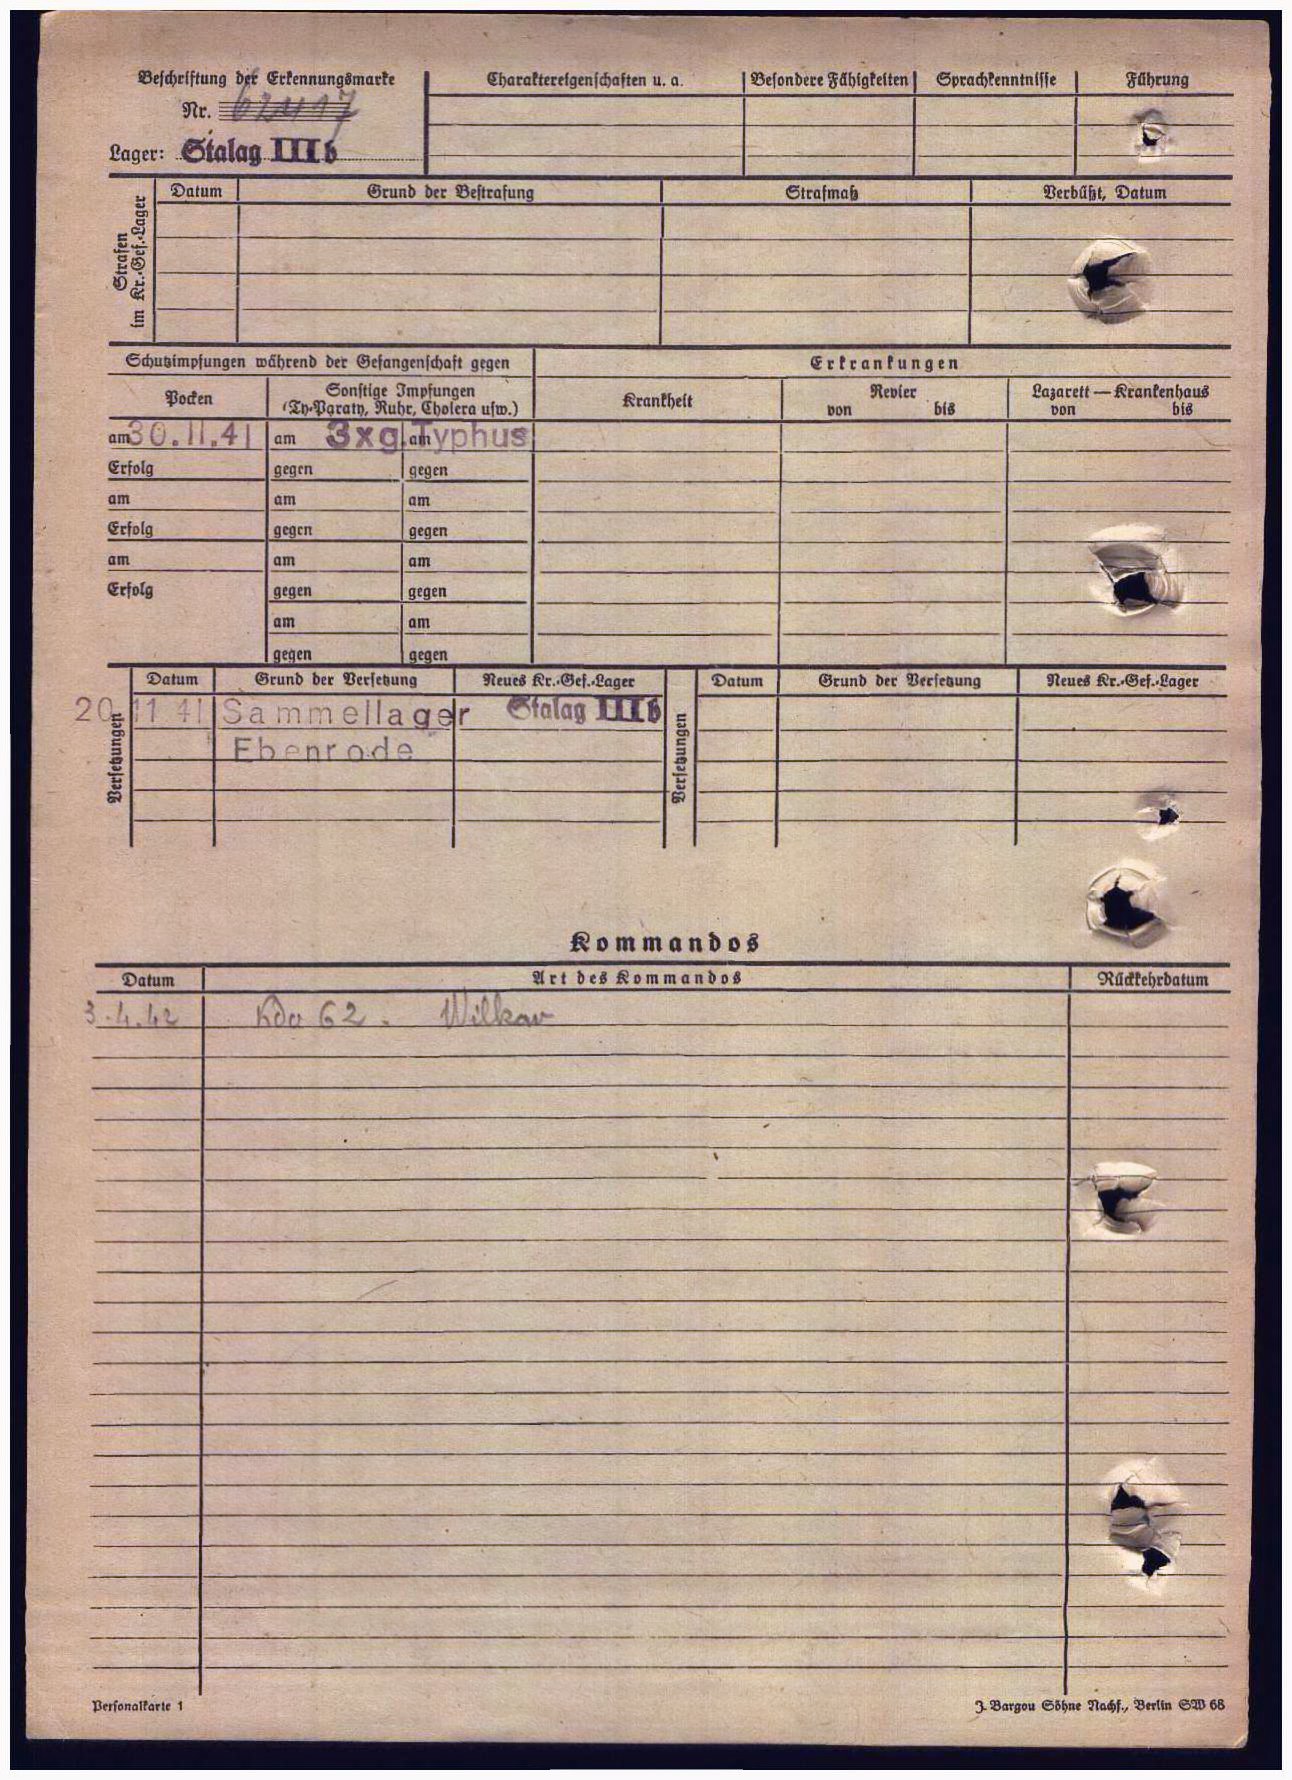 Beschriftung der Erkennungsmarke
Nr. 62417
Lager: Stalag IIIb
Charaktereigenschaften u. a.
Besondere Fähigkeiten
Sprachkenntnisse
Führung
Strafen im Kr.-Gef.-Lager
Datum
Grund der Bestrafung
Strafmaß
Verbüßt, Datum
Schutzimpfungen während der Gefangenschaft gegen
Erkrankungen
Pocken
Sonstige Impfungen
(Ty-Paraty, Ruhr, Cholera usw.)
Krankheit
Revier
von bis
Lazarett — Krankenhaus
von bis
am 30.11.41 am 3xg. am Typhus
Erfolg gegen gegen
am am am
Erfolg gegen gegen
am am am
Erfolg gegen gegen
am am
gegen gegen
Versetzungen
Datum Grund der Versetzung Neues Kr.-Gef.-Lager
20 11 41 Sammellager Stalag IIIb
Ebenrode
Versetzungen
Datum Grund der Versetzung Neues Kr.-Gef.-Lager
Kommandos
Datum Art des Kommandos Rückkehrdatum
3.4.42 Kdo 62. Wilkau
Personalkarte 1
J. Bargou Söhne Nachf., Berlin SW 68